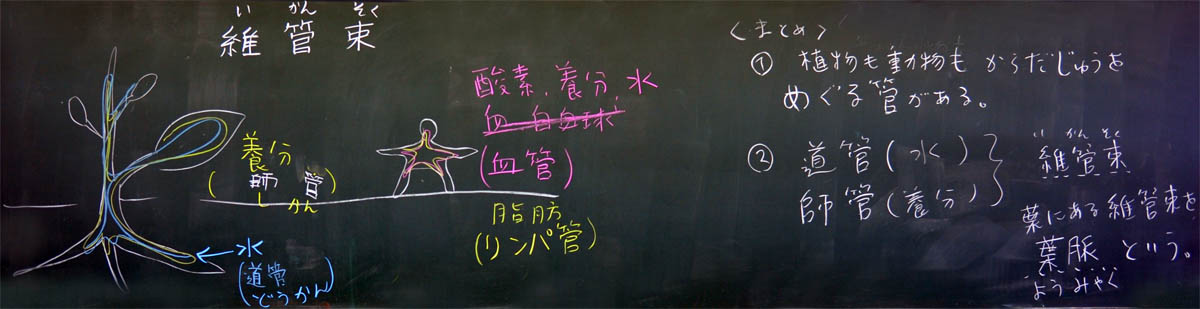 いかんそく
維管束
養分
(師管)
しかん
水
(道管
どうかん
酸素、養分、水
血 白血球
(血管)
脂肪
(リンパ管)
〈まとめ〉
① 植物も動物も からだじゅうを
めぐる管がある。
② 道管(水)
師管(養分)
いかんそく
維管束
葉にある維管束を
葉脈 という。
ようみゃく